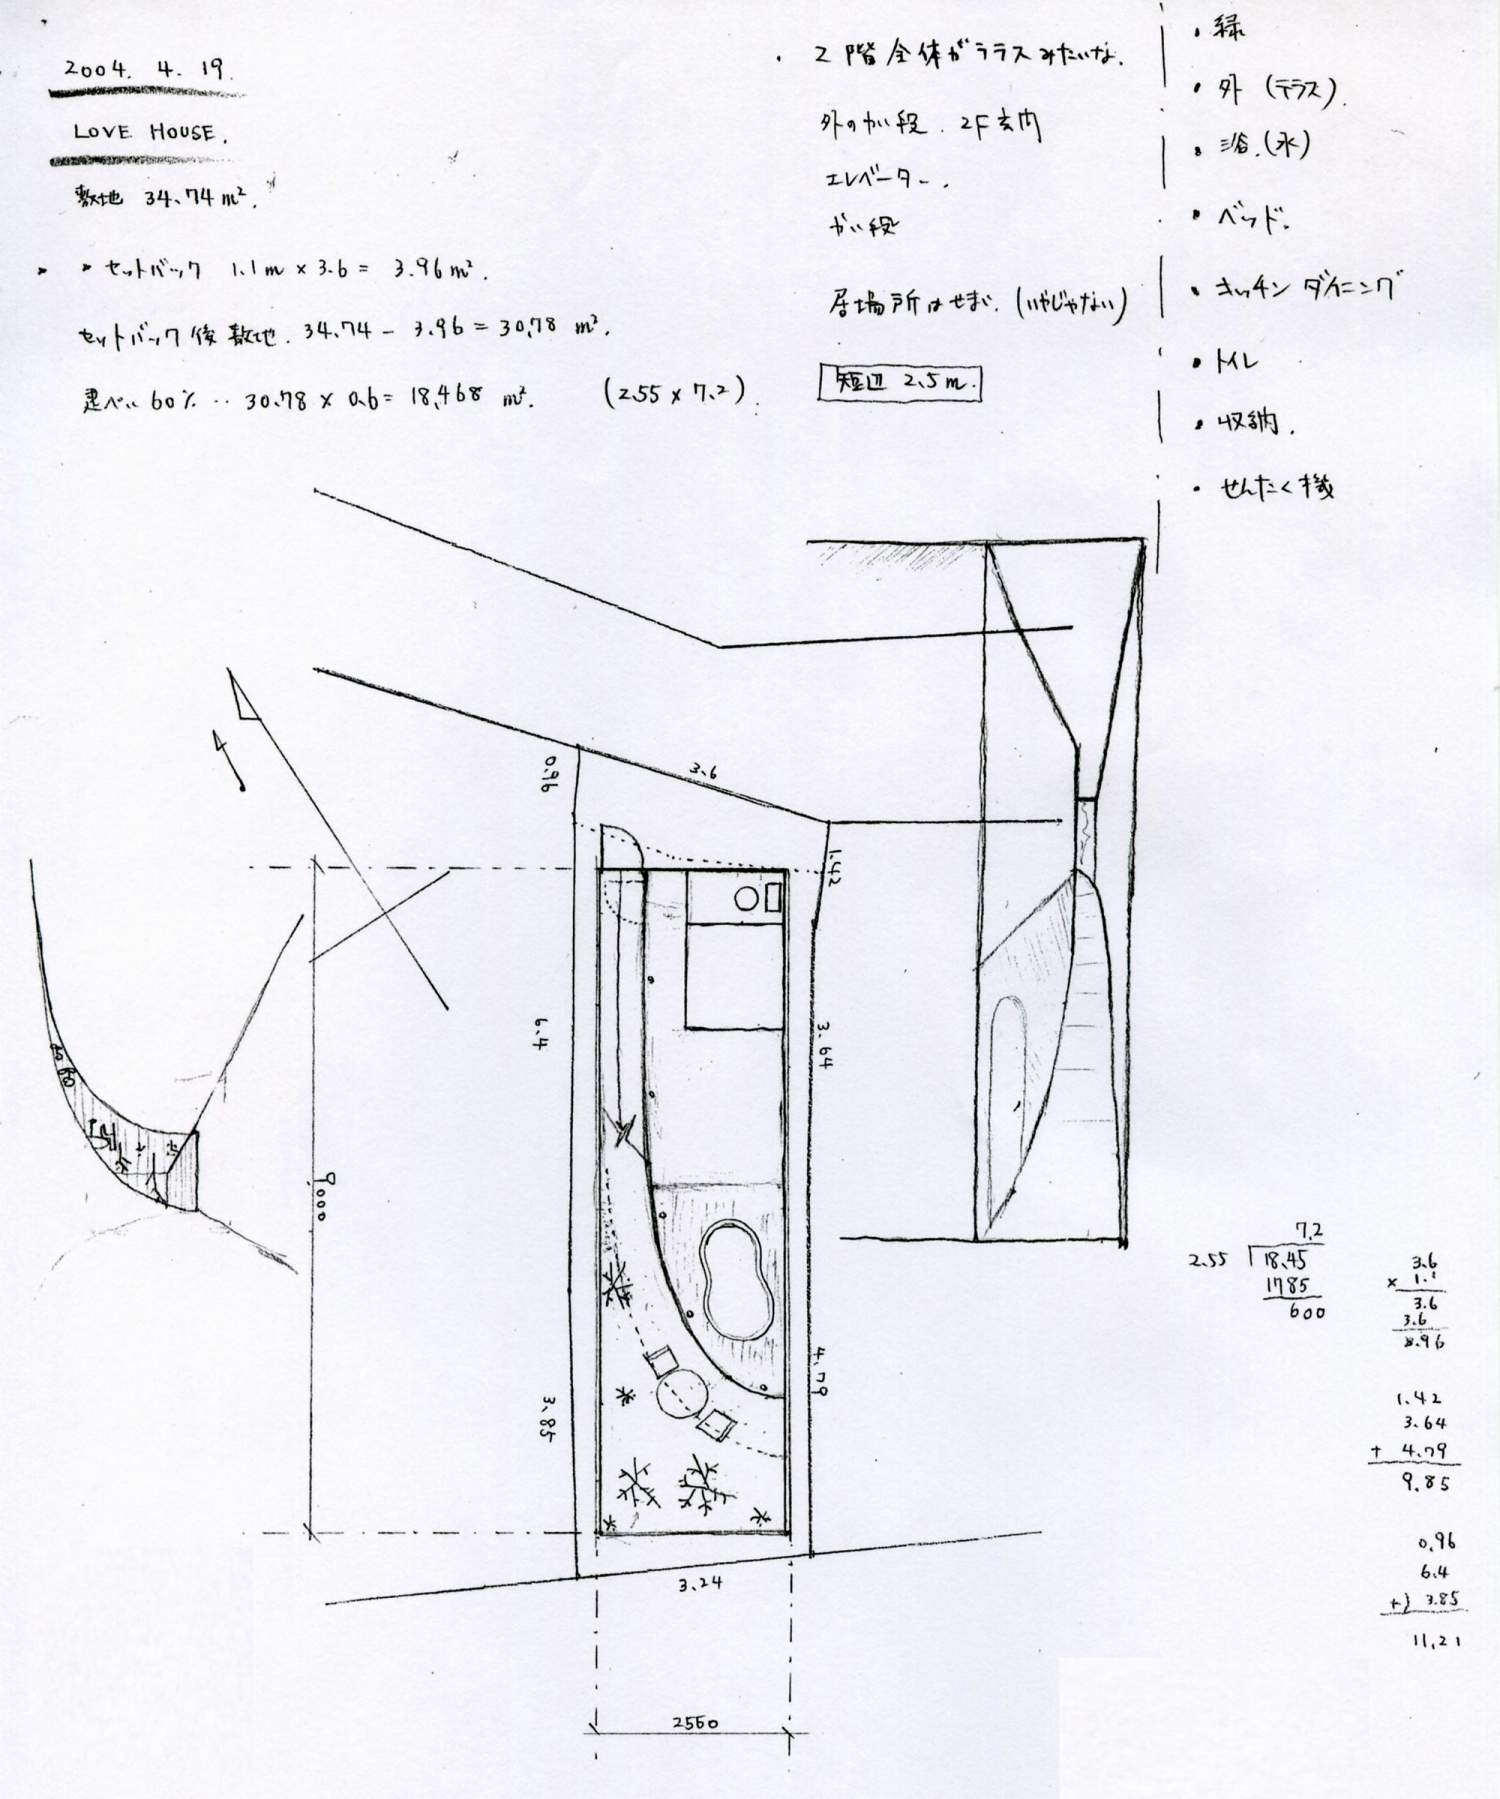 2004. 4. 19.
LOVE HOUSE.
敷地 34.74 m².
・セットバック 1.1 m × 3.6 = 3.96 m².
セットバック後敷地. 34.74 - 3.96 = 30.78 m².
建ぺい 60% ‥ 30.78 × 0.6 = 18.468 m². (2.55 × 7.2).
・2階全体がテラスみたいな.
外のかい段. 2F玄内
エレベーター.
かい段
居場所はせまい. (いやじゃない)
短辺 2.5 m.
・緑
・外 (テラス).
・浴. (水)
・ベッド.
・キッチン ダイニング
・トイレ
・収納.
・せんたく機
0.96
3.6
1.42
6.4
3.64
9000
3.85
4.79
3.24
2550
7.2
2.55 18.45
1785
600
3.6
× 1.1
3.6
3.6
3.96
1.42
3.64
+ 4.79
9.85
0.96
6.4
+) 3.85
11.21